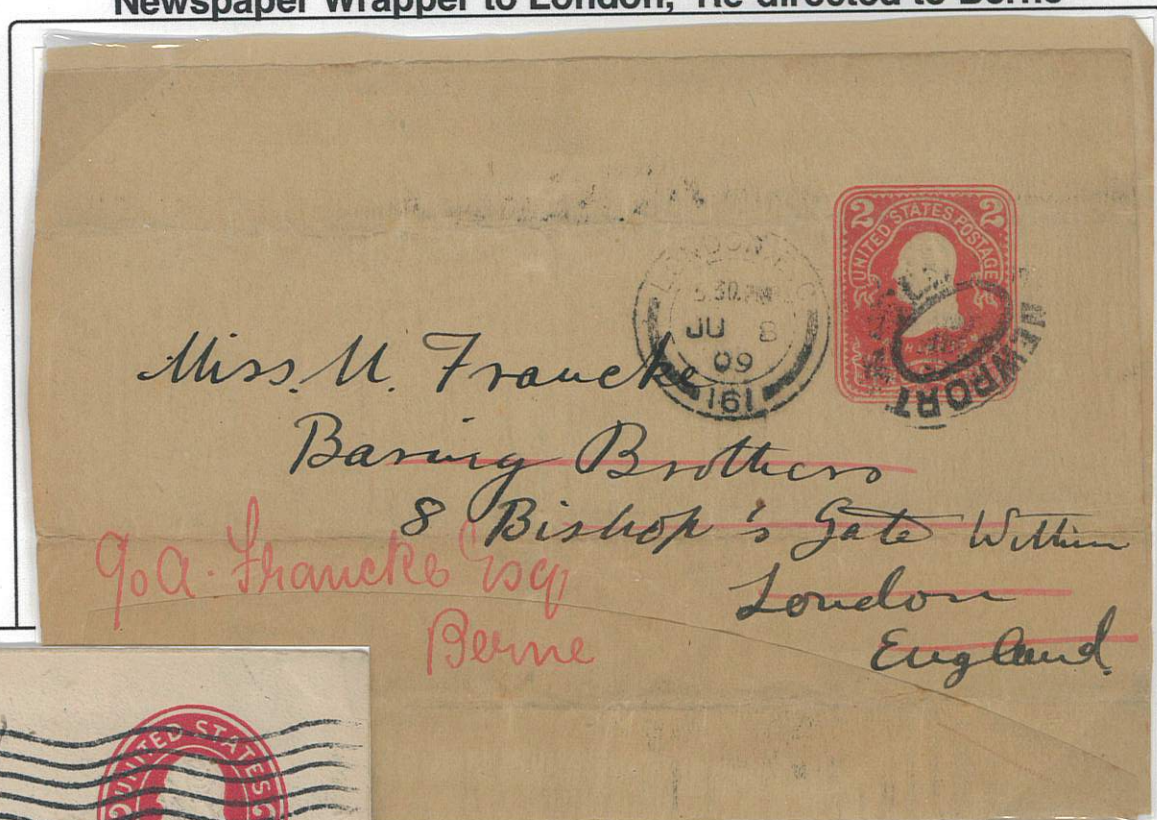 Newspaper Wrapper to London, Re-directed to Berne
2 2
UNITED STATES POSTAGE
LONDON E.C
5.30.PM
JU 8
09
161
NEWPORT
Miss. M. Francke
Baring Brothers
8 Bishop's Gate Within
London
England.
c/o A. Francke Esq
Berne
UNITED STATES
2 2